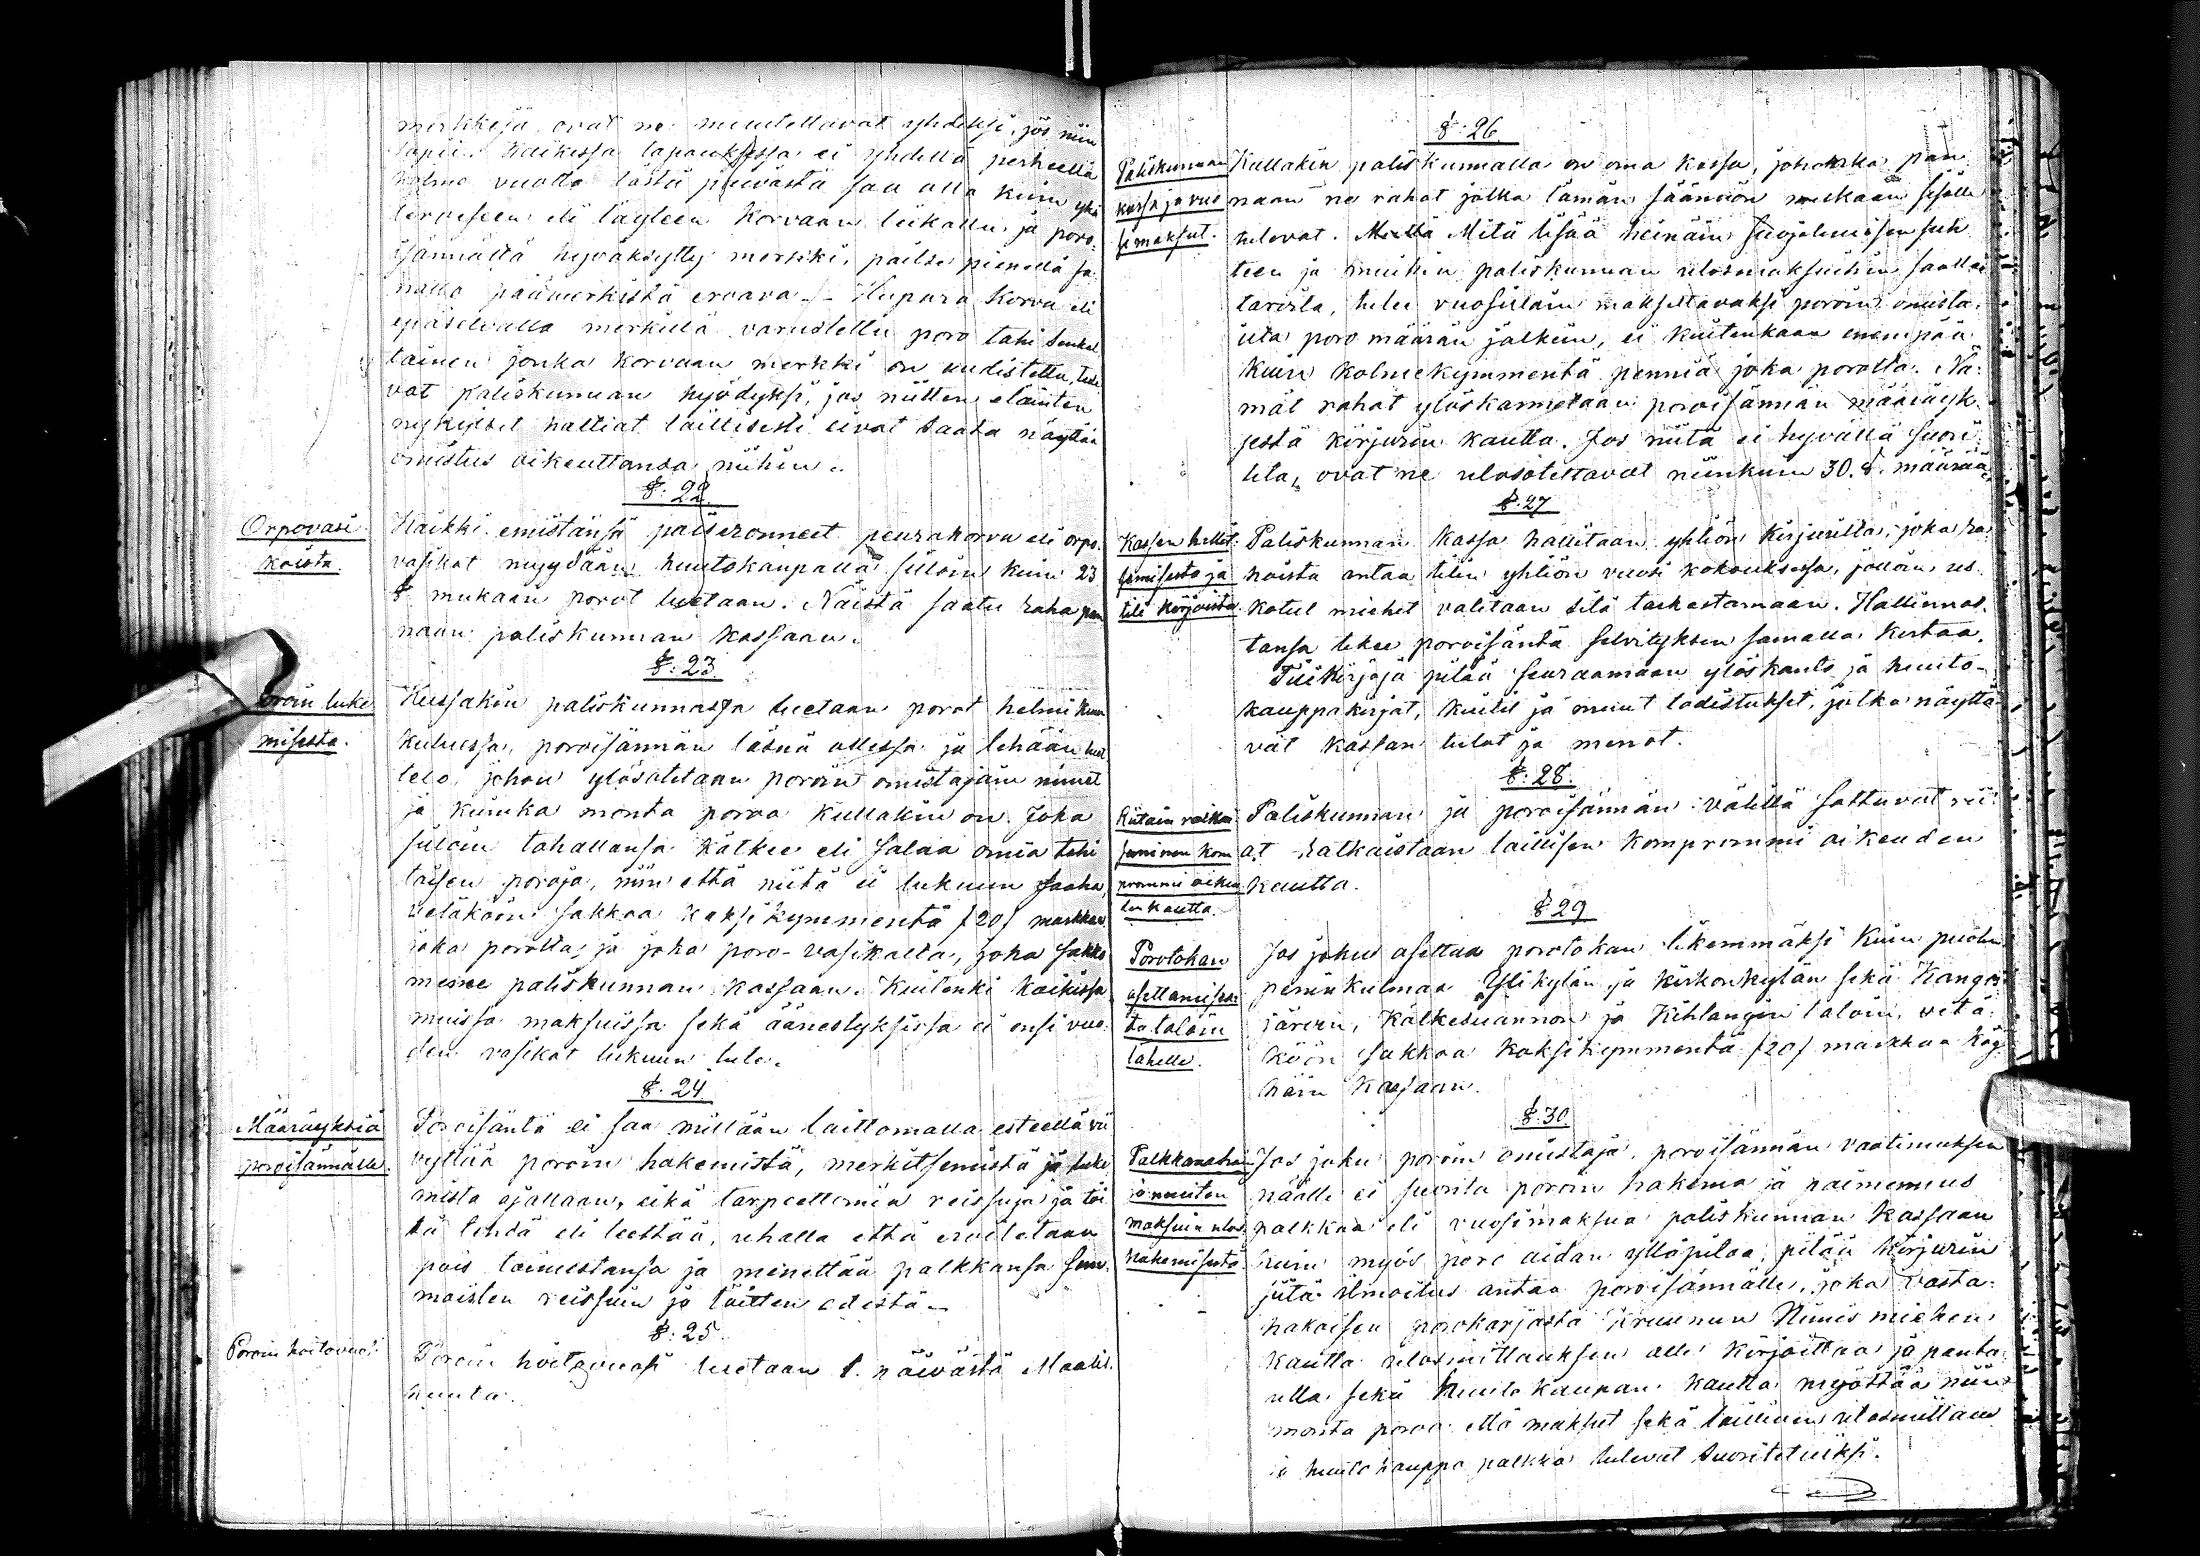 merkkejä, ovat ne muutettavat yhdeksi, jos niin
sopii. Kaikissa tapauksissa ei yhdellä perheellä
kolme vuotta tästä päivästä saa olla kuin yksi
terveeseen eli täyteen korvaan leikattu ja poro-
isännältä hyväksytty merkki, paitse pienellä sa-
nalla päämerkistä eroava. Hupara korva eli
epäselvällä merkillä varustettu poro tahi senkal
tainen jonka korvaan merkki on uudistettu, tule
vat paliskunnan hyödyksi, jos niitten eläinten
nykyiset haltiat laillisesti eivat saata näyttää
omistus oikeuttansa niihin.
§: 22.
Orpovasi
koista.
Kaikki emistänsä paitseronneet peurakorva eli orpo-
vasikat myydään huutokaupalla silloin kuin 23
§ mukaan porot luetaan. Näistä saatu raha pan
naan paliskunnan kassaan.
§: 23.
Poroin luke
misesta.
Kussakin paliskunnassa luetaan porot helmi kuun
kuluessa, poroisännän läsnä ollessa ja tehään luet
telo, johon ylösotetaan poroin omistajain nimet
ja kuinka monta poroa kullakin on. Joka
silloin tahallansa kätkee eli salaa omia tahi
toisen poroja, niin että niitä ei lukuun saaha,
vetäköön sakkoa kaksikymmentä /20/ markkaa
joka porolta, ja joka poro-vasikalta, joka sakko
menee paliskunnan kassaan. Kuitenki kaikissa
muissa maksuissa sekä äänestyksissä ei ensi vuo-
den vasikat lukuun tule.
§. 24
Määräyksiä
poroisännälle.
Poroisäntä ei saa millään laittomalla esteellä vii
vyttää poroin hakemista, merkitsemistä ja luke
mista ajallaan, eikä tarpeettomia reissuja ja töi
tä tehdä eli teettää, uhalla että eroitetaan
pois toimestansa ja menettää palkkansa sem-
moisten reissuin ja töitten edestä.
§: 25.
Poroin hoitovuosi
Poroin hoitovuosi luetaan 1. päivästä Maalis
kuuta.
§: 26.
Paliskunnan
kassa ja vuo
simaksut.
Kullakin paliskunnalla on oma kassa, johonka pan
naan ne rahat jotka tämän säännön mukaan sisälle
tulevat. Mitä lisää heinäin suojelemisen suh
teen ja muihin paliskunnan ulosmaksuihin saattaa
tarvita, tulee vuosittain maksettavaksi poroin omista-
jilta poro määrän jälkeen, ei kuitenkaan enempää
kuin kolmekymmentä penniä joka porolta. Nä-
mät rahat ylöskannetaan poroisännän määräyk-
sestä kirjurin kautta. Jos niitä ei hyvällä suori-
teta, ovat ne ulosotettavat niinkuin 30. §. määrää.
§. 27
Kassan hallit
semisesta ja
tili kirjoista.
Paliskunnan kassa hallitaan yhtiön kirjurilta, joka ra
hoista antaa tilin yhtiön vuosi kokouksessa, jolloin us-
kotut miehet valitaan sitä tarkastamaan. Hallinnos-
tansa tekee poroisäntä selvityksen samalla kertaa.
Tilikirjoja pitää seuraamaan ylöskanto ja huuto-
kauppakirjat, kuitit ja muut todistukset, jotka näyttä
vät kassan tulot ja menot.
§: 28.
Riitain ratkai
seminen kom
prommi oikeu
den kautta.
Paliskunnan ja poroisännän välillä sattuvat rii
at ratkaistaan laillisen komprommi oikeuden
kautta.
§ 29
Porotokan
asettamises
ta taloin
lähelle.
Jos joku asettaa porotokan likemmäksi kuin puolen
peninkulmaa Ylikylän ja kirkonkylän sekä Kangos
järven, Kätkesuannon ja Kihlangin taloin, vetä-
köön sakkoa kaksikymmentä /20/ markkaa köy-
häin kassaan.
§. 30
Palkkarahain
ja muiten
maksuin ulos
hakemisesta
Jos joku poroin omistaja, poroisännän vaatimuksen
päälle ei suorita poroin hakema ja paimennus
palkkaa eli vuosimaksua paliskunnan kassaan
kuin myös poro aidan ylläpitoa, pitää kirjurin
siitä ilmoitus antaa poroisännälle, joka vasta-
hakoisen porokarjasta Kruunun Nimismiehen
kautta ulosmittauksen alle kirjoittaa ja panta-
ulla sekä huuto kaupan kautta myöttää niin
monta poroa että maksut sekä laillinen ulosmittaus
ja huuto kauppa palkka tulevat suoritetuiksi.